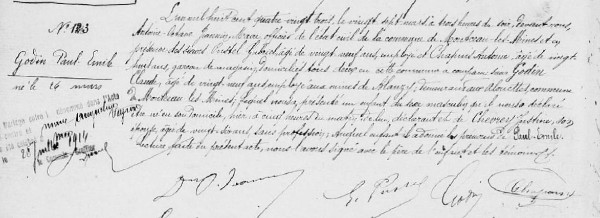 N° 123
Godin Paul Emile
né le 26 mars
L'an mil huit cent quatre vingt trois, le vingt sept mars à trois heures du soir, devant nous,
Antoine Jeannin, Maire, officier de l'état civil de la commune de Montceau les Mines et en
présence des sieurs Gabriel, âgé de vingt neuf ans, employé et Chapuis Antoine, âgé de vingt
huit ans, garçon de magasin, domiciliés tous deux en cette commune a comparu sieur Godin
Claude, âgé de vingt neuf ans, employé aux mines de Blanzy, demeurant aux Alouettes, commune
de Montceau les Mines, lequel nous a présenté un enfant du sexe masculin qu'il nous a déclaré
être né en son domicile, hier à cinq heures du matin de lui, déclarant et de Justine, son
épouse, âgée de vingt ans, sans profession, auquel enfant il a donné les prénoms de Paul-Emile.
Lecture faite du présent acte, nous l'avons signé avec le père de l'enfant et les témoins.
juillet 1914
Godin Chapuis